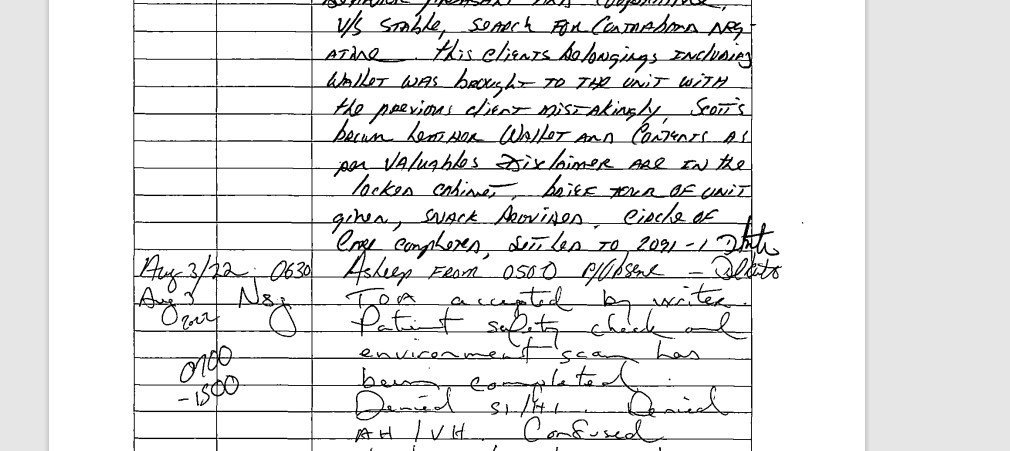 V/S Stable, Search for Contraband neg-
ative. this clients belongings including
Wallet was brought to the unit with
the previous client mistakingly, Scott's
brown leather Wallet and Contents as
per Valuables Disclaimer are in the
locked cabinet, brief tour of unit
given, snack provided. Circle of
Care completed, settled to 2091-1
Aug 3/22 0630 Asleep from 0500
Aug 3 2022 Nsg TOA accepted by writer.
Patient safety check and
environment scan has
0700 - 1500 been completed.
Denied SI/HI. Denied
AH/VH. Confused